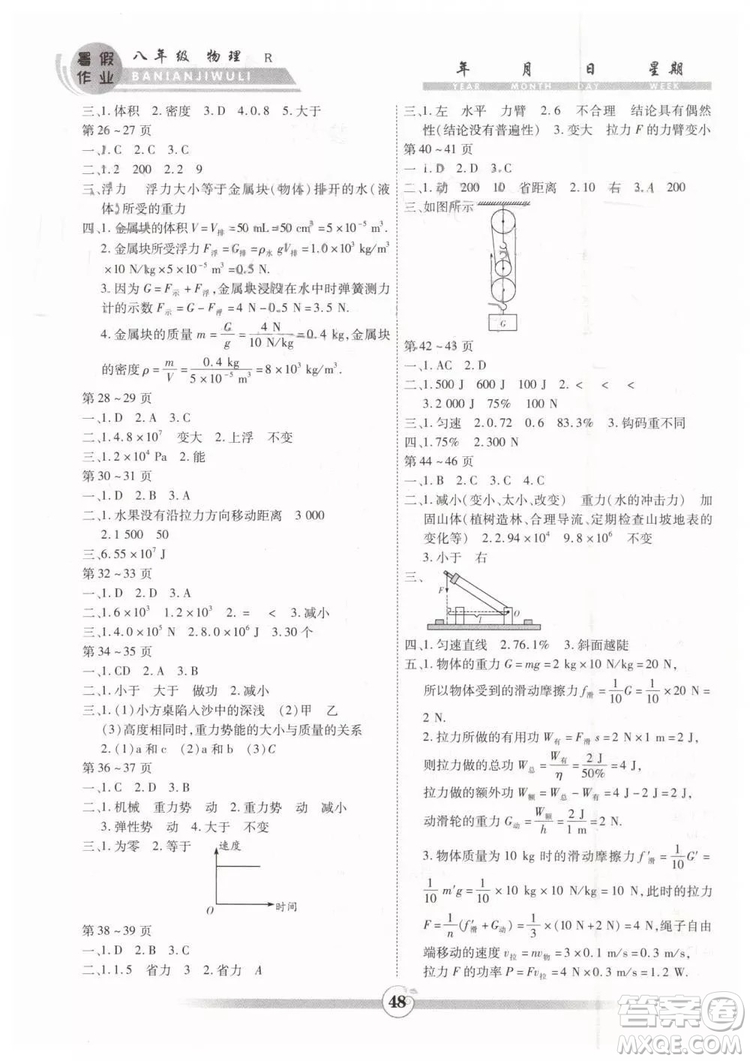 暑假作业
八年级 物理 R
BANIANJIWULI
年 月 日 星期
YEAR MONTH DAY WEEK
三、1.体积 2.密度 3.D 4.0.8 5.大于
第26~27页
一、1.C 2.C
二、1.2 200 2.2 9
三、浮力 浮力大小等于金属块(物体)排开的水(液
体)所受的重力
四、1.金属块的体积V=V排=50 mL=50 cm³=5×10⁻⁵ m³
2.金属块所受浮力F浮=G排=ρ水gV排=1.0×10³ kg/m³
×10 N/kg×5×10⁻⁵ m³=0.5 N
3.因为G=F示+F浮,金属块浸没在水中时弹簧测力
计的示数F示=G-F浮=4 N-0.5 N=3.5 N
4.金属块的质量m=G/g=4 N/10 N/kg=0.4 kg,金属块
的密度ρ=m/V=0.4 kg/5×10⁻⁵ m³=8×10³ kg/m³
第28~29页
一、1.D 2.A 3.D
二、1.4.8×10⁷ 变大 2.上浮 不变
三、1.2×10⁴ Pa 2.能
第30~31页
一、1.D 2.B 3.A
二、1.水果没有沿拉力方向移动距离 3 000
2.1 500 50
三、6.55×10⁷ J
第32~33页
一、1.D 2.A 3.D
二、1.6×10³ 1.2×10³ 2.= < 3.减小
三、1.4.0×10⁷ N 2.8.0×10⁶ N 3.10⁶ W
第34~35页
一、1.CD 2.A 3.D
二、1.小于 大于 做功 2.减小
三、1.(1)小方桌陷入沙中的深浅 (2)甲 乙
(3)高度相同时,重力势能的大小与质量的关系
2.(1)a和c (2)a和b
第36~37页
一、1.D 2.C 3.A
二、1.机械 重力势 动 2.重力势 动
3.弹性势 动 4.大于 不变
三、1.为零 2.等于
速度
O
时间
第38~39页
二、1.1.5 省力 2.省力 A
三、1.左 水平 力臂 2.6 不合理 结论具有偶然
性(结论没有普遍性) 3.变大 拉力F的力臂变小
第40~41页
一、1.D 2.D 3.C
二、1.动 200 10 省距离 2.40
三、如图所示
G
第42~43页
一、1.AC 2.D
二、1.500 J 600 J 100 J 2.< <
3.2 000 J 75% 100 N
三、1.匀速 2.0.72 0.6 83.3% 3.钩码重不同
四、1.75% 2.300 N
第44~46页
一、1.B 2.D 3.C
二、1.减小(变小、太小、改变) 重力(水的冲击力) 加
固山体(植树造林、合理导流、定期检查山坡地表的
变化等) 2.2.94×10⁴ 9.8×10⁵ 不变
3.小于 右
三、
F
l
O
四、1.匀速直线 2.76.1% 3.斜面越陡
五、1.物体的重力G=mg=2 kg×10 N/kg=20 N,
所以物体受到的滑动摩擦力f滑=1/10G=1/10×20 N=
2 N.
2.拉力所做的有用功W有=F滑s=2 N×1 m=2 J,
则拉力所做的总功W总=W有/η=2 J/50%=4 J,
拉力做的额外功W额=W总-W有=4 J-2 J=2 J,
动滑轮的重力G动=W额/h=2 J/1 m=2 N.
3.物体质量为10 kg时的滑动摩擦力f′滑=1/10G′=
1/10m′g=1/10×10 kg×10 N/kg=10 N,此时的拉力
F=1/n(f′滑+G动)=1/3×(10 N+2 N)=4 N,绳子自由
端移动的速度v拉=nv物=3×0.1 m/s=0.3 m/s,
拉力F的功率P=Fv拉=4 N×0.3 m/s=1.2 W.
48
答案圈
MXQE.COM